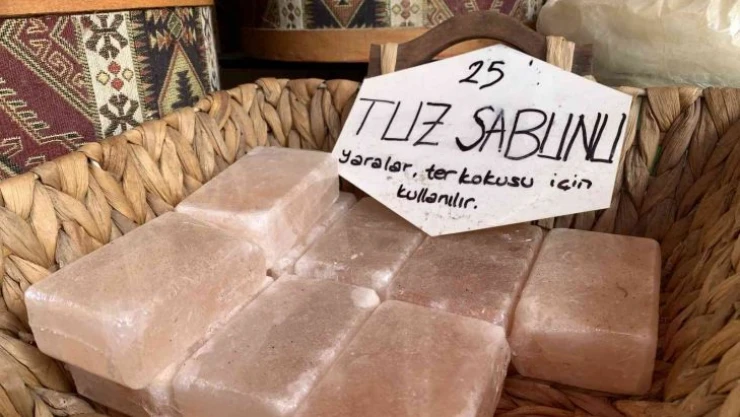 25
TUZ SABUNU
yaralar, ter kokusu için
kullanılır.